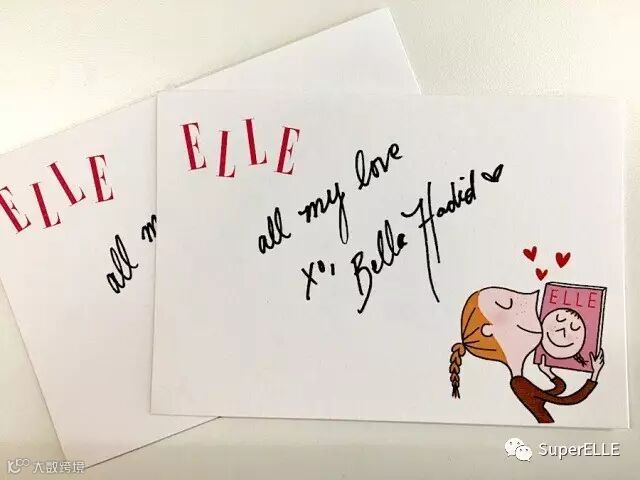 ELLE
all my love
xo, Bella Hadid
ELLE
ELLE
all m
SuperELLE
大数跨境